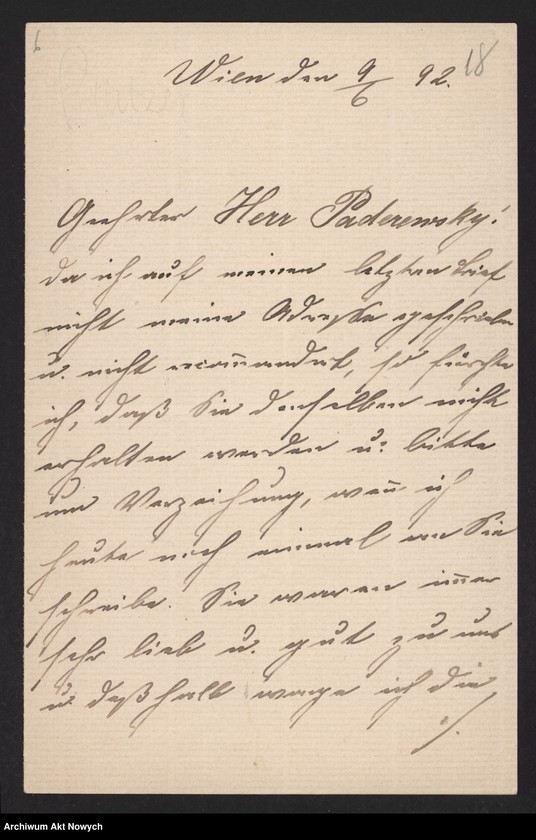 6
18
Wien den 9/6 92.
Geehrter Herr Paderewsky!
da ich auf meinen letzten Brief
nicht meine Adresse geschrieben
u. nicht recom̄andirt, so fürchte
ich, daß Sie denselben nicht
erhalten werden u. bitte
um Verzeihung, wen̄ ich
heute noch einmal an Sie
schreibe. Sie waren im̄er
sehr lieb u. gut zu uns
u. deßhalb wage ich die
./.
Archiwum Akt Nowych